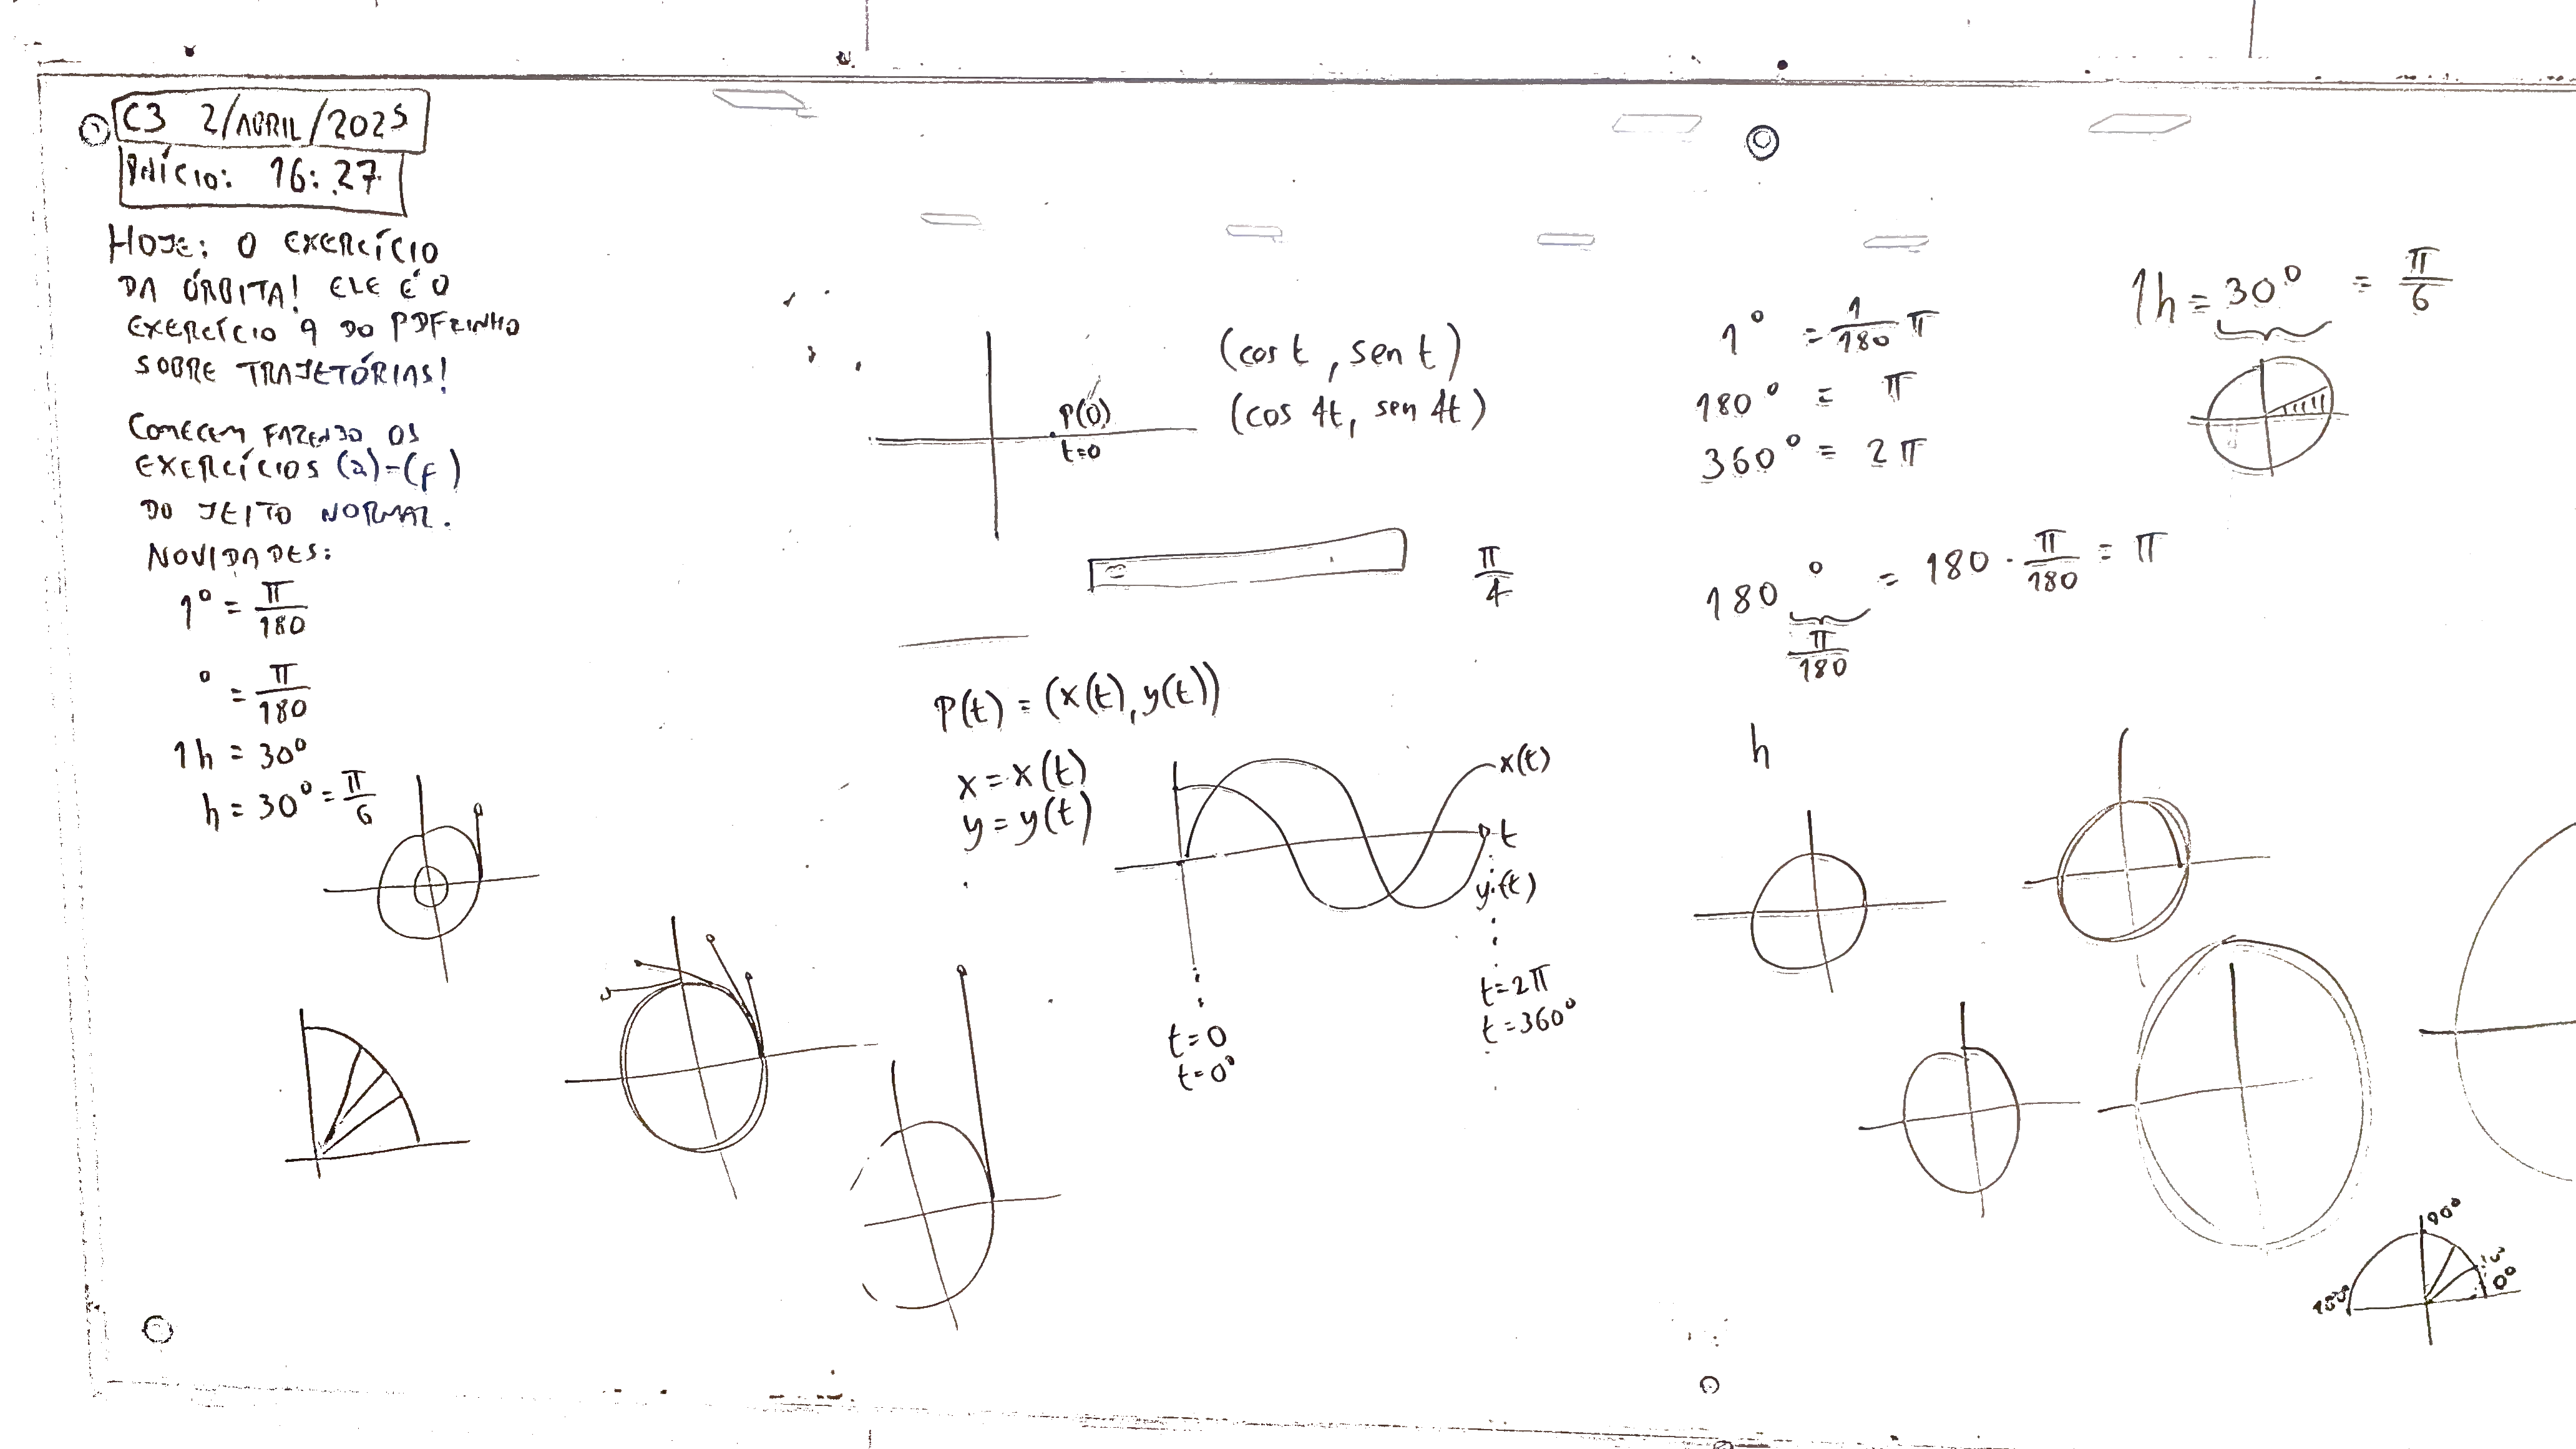 C3 2/ABRIL/2025
INÍCIO: 16:27
HOJE: O EXERCÍCIO
DA ÓRBITA! ELE É O
EXERCÍCIO 9 DO PDFZINHO
SOBRE TRAJETÓRIAS!
COMECEM FAZENDO OS
EXERCÍCIOS (a)-(f)
DO JEITO NORMAL.
NOVIDADES:
1° = π/180
° = π/180
1h = 30°
h = 30° = π/6
P(0)
t=0
(cos t, sen t)
(cos 4t, sen 4t)
π/4
P(t) = (x(t), y(t))
x = x(t)
y = y(t)
x(t)
t
y(t)
t=0
t=0°
t=2π
t=360°
1° = 1/180 π
180° = π
360° = 2π
1h = 30° = π/6
180° = 180 · π/180 = π
π/180
h
90°
0°
180°